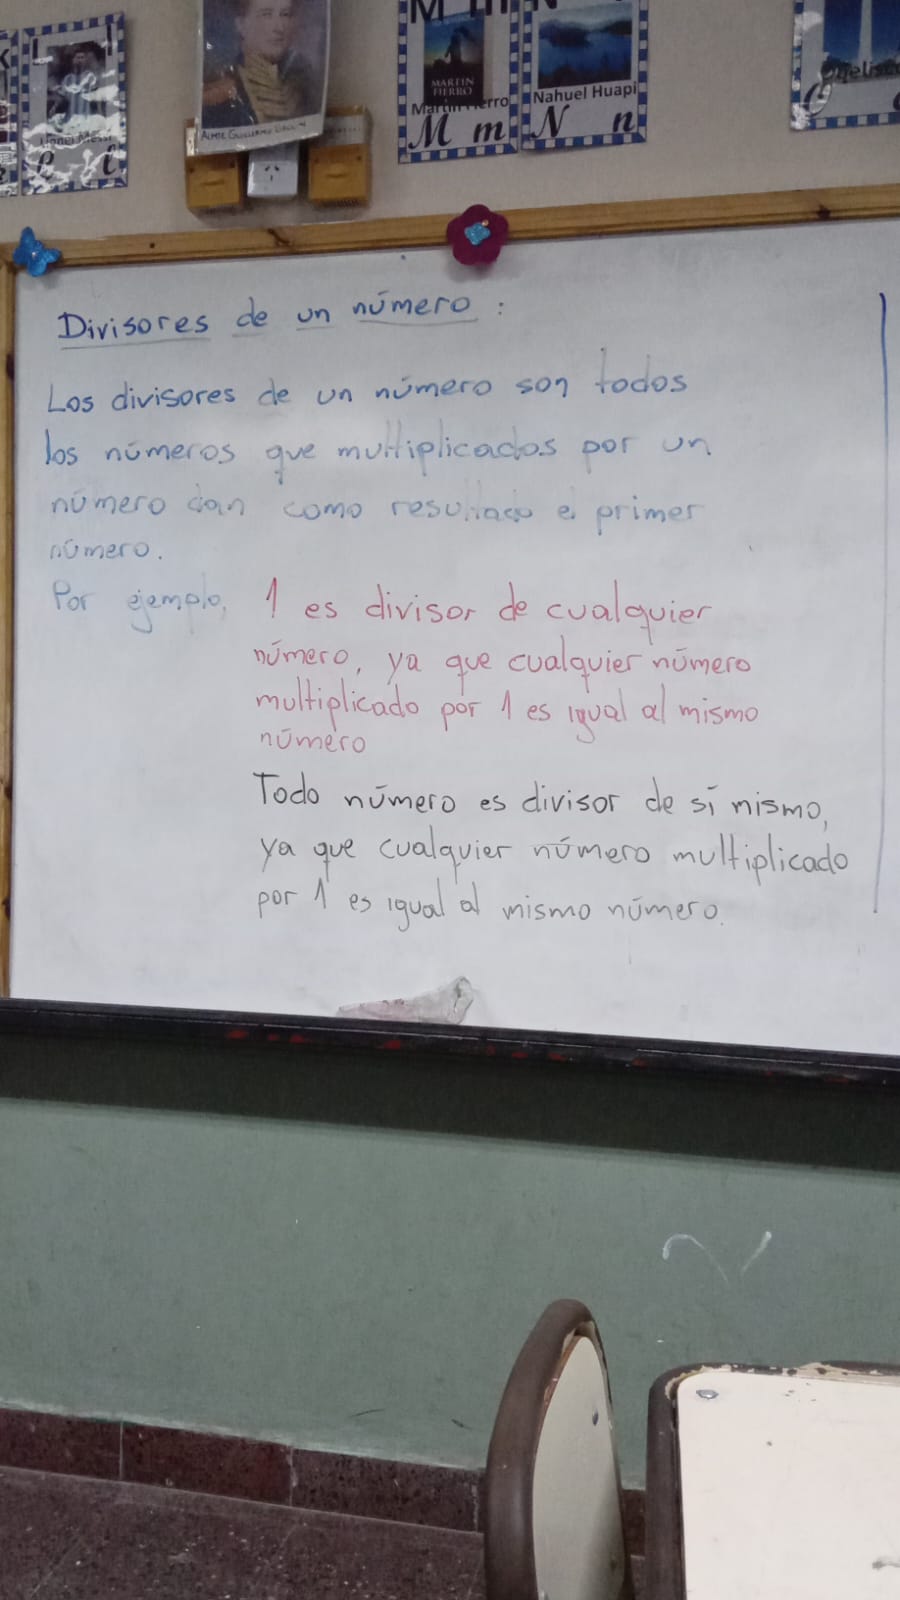 L l
Lionel Messi
L l
ALMTE GUILLERMO BROWN
M m N
MARTIN
FIERRO
Martin Fierro
Nahuel Huapi
M m N n
Divisores de un número :
Los divisores de un número son todos
los números que multiplicados por un
número dan como resultado el primer
número.
Por ejemplo, 1 es divisor de cualquier
número, ya que cualquier número
multiplicado por 1 es igual al mismo
número
Todo número es divisor de sí mismo,
ya que cualquier número multiplicado
por 1 es igual al mismo número.